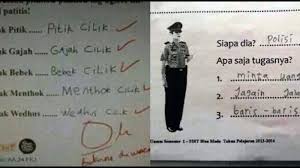 patitis!
uk Pitik ..... Pitik Cilik
uk Gajah .... Gajah Cilik
uk Bebek ..... Bebek Cilik
uk Menthok ... Menthok Cilik
uk Wedhus .... Wedhus Cilik
Siapa dia? Polisi
Apa saja tugasnya?
1. minta uang
2. Jagain
3. baris-baris
Semester 1 - Tahun Pelajaran 2013-2014